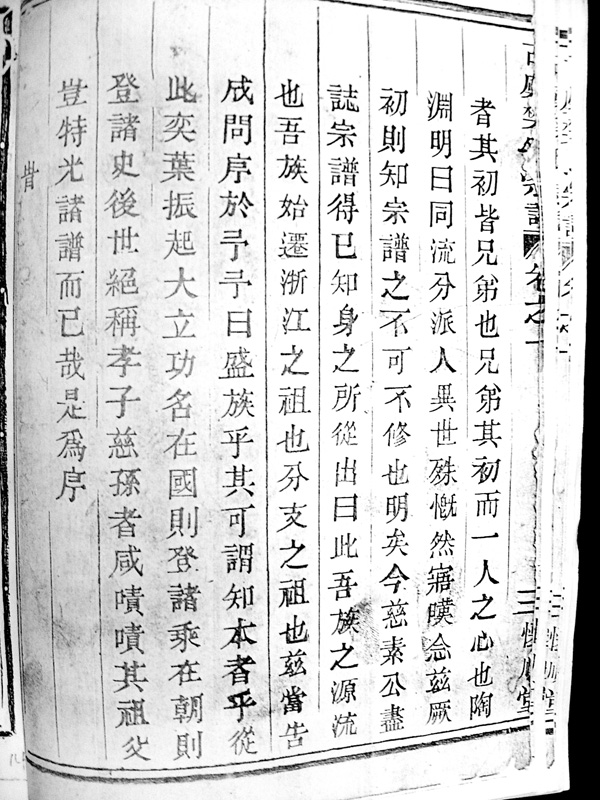 宗譜 卷之一
者其初皆兄弟也兄弟其初而一人之心也陶
淵明曰同流分派人異世殊慨然寤嘆念茲厥
初則知宗譜之不可不修也明矣今慈素公盡
誌宗譜得已知身之所從出曰此吾族之源流
也吾族始遷浙江之祖也分支之祖也茲當告
成問序於予予曰盛族乎其可謂知本者乎從
此奕葉振起大立功名在國則登諸乘在朝則
登諸史後世絕稱孝子慈孫者咸嘖嘖其祖父
豈特光諸譜而已哉是爲序
旹